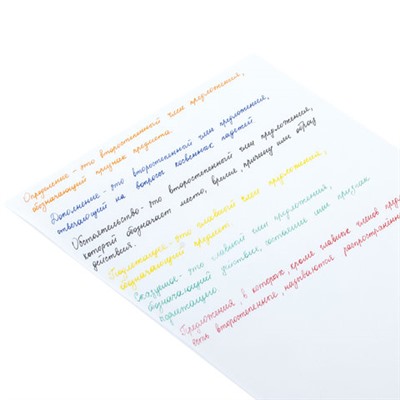 Определение - это второстепенный член предложения,
обозначающий признак предмета.
Дополнение - это второстепенный член предложения,
отвечающий на вопросы косвенных падежей
Обстоятельство - это второстепенный член предложения,
который обозначает место, время, причину или образ
действия.
Подлежащее - это главный член предложения,
обозначающий предмет.
Сказуемое - это главный член предложения,
обозначающий действие, состояние или признак
подлежащего.
Предложения, в которых, кроме главных членов
есть второстепенные, называются